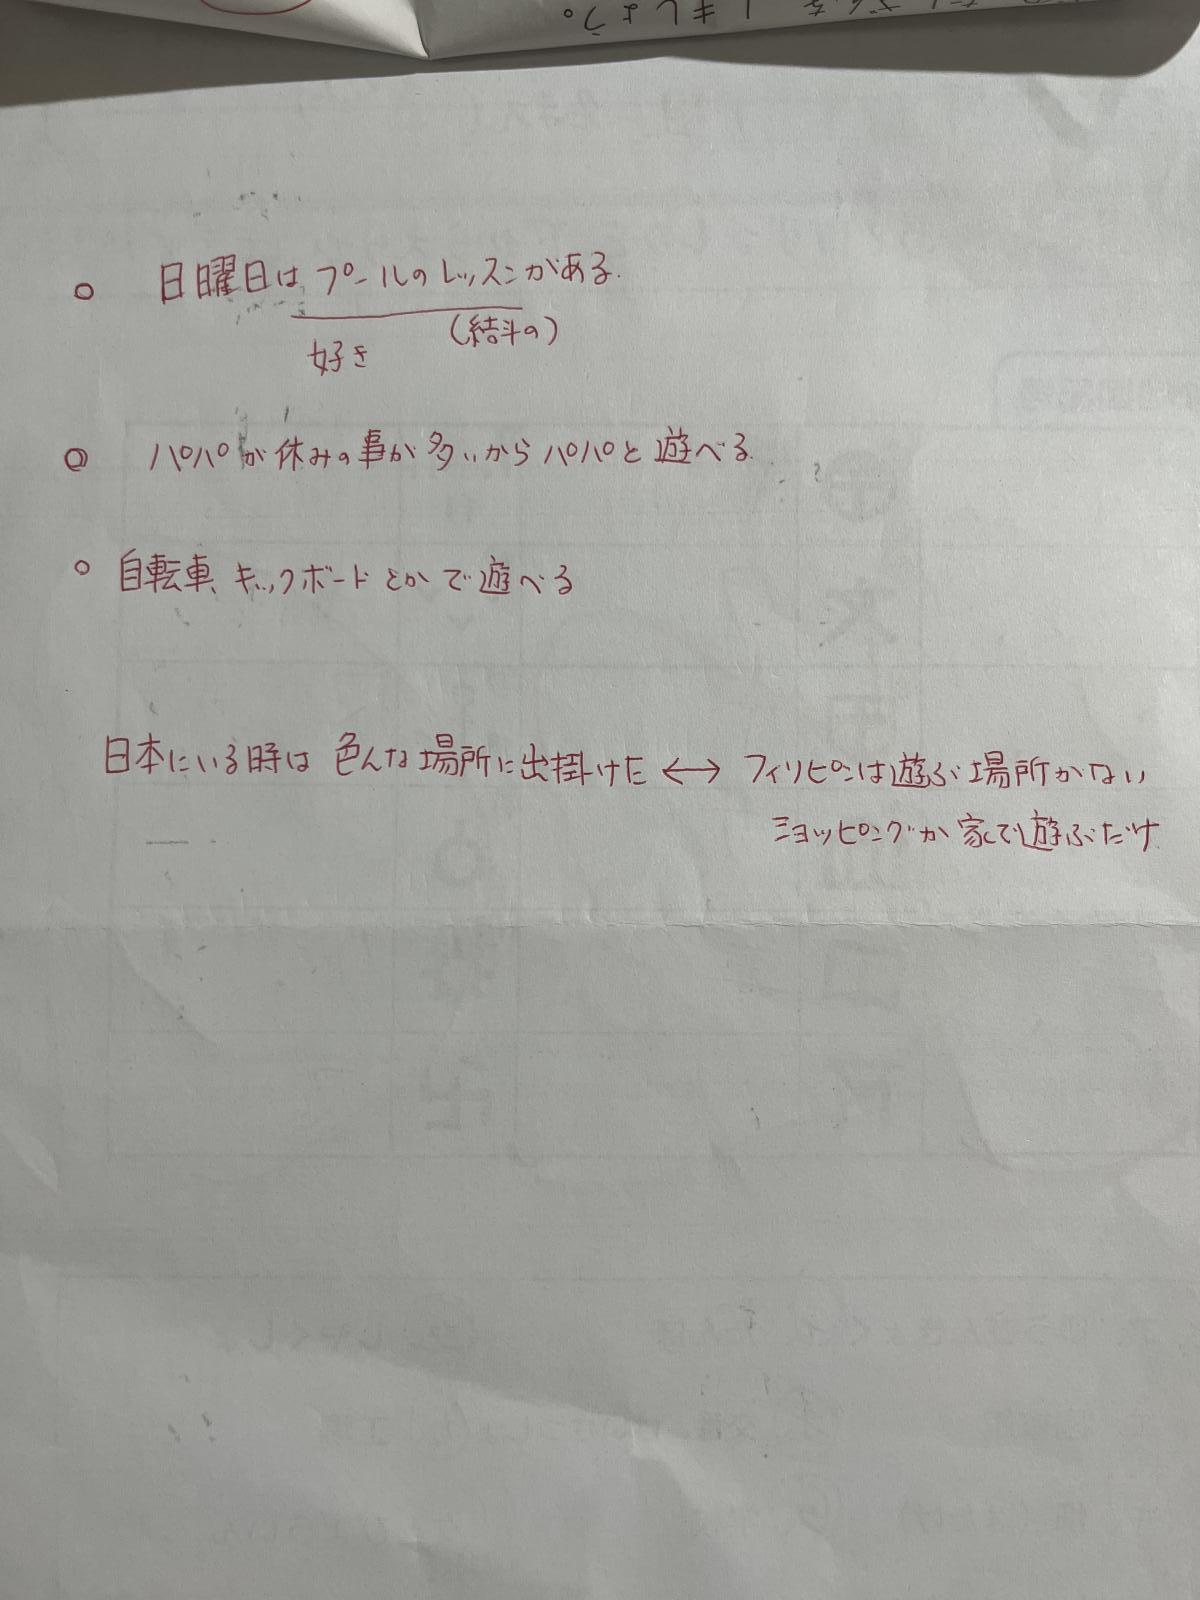 ○ 日曜日は プールのレッスンがある.
好き (結斗の)
◎ パパが休みの事が多いからパパと遊べる.
○ 自転車、キックボードとかで遊べる
日本にいる時は 色んな場所に出掛けた ↔ フィリピンは遊ぶ場所がない
ショッピングか家で遊ぶだけ